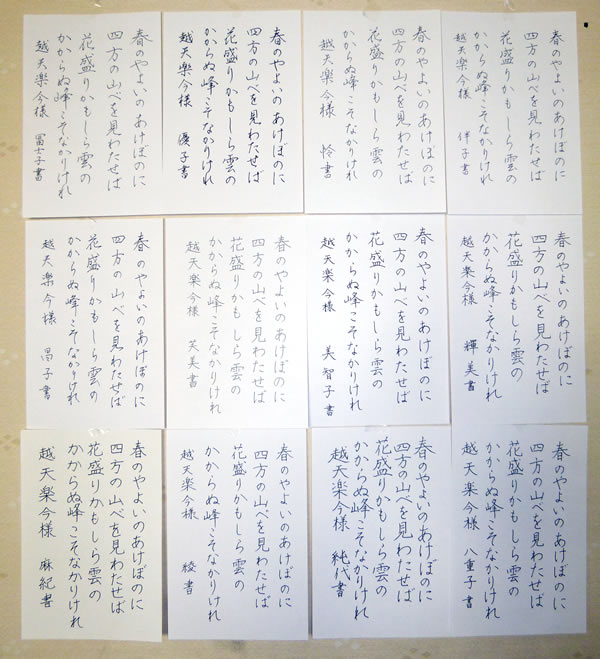 春のやよいのあけぼのに
四方の山べを見わたせば
花盛りかもしら雲の
かからぬ峰こそなかりけれ
越天楽今様 伴子書
春のやよいのあけぼのに
四方の山べを見わたせば
花盛りかもしら雲の
かからぬ峰こそなかりけれ
越天楽今様 怜書
春のやよいのあけぼのに
四方の山べを見わたせば
花盛りかもしら雲の
かからぬ峰こそなかりけれ
越天楽今様 優子書
春のやよいのあけぼのに
四方の山べを見わたせば
花盛りかもしら雲の
かからぬ峰こそなかりけれ
越天楽今様 冨士子書
春のやよいのあけぼのに
四方の山べを見わたせば
花盛りかもしら雲の
かからぬ峰こそなかりけれ
越天楽今様 輝美書
春のやよいのあけぼのに
四方の山べを見わたせば
花盛りかもしら雲の
かからぬ峰こそなかりけれ
越天楽今様 美智子書
春のやよいのあけぼのに
四方の山べを見わたせば
花盛りかもしら雲の
かからぬ峰こそなかりけれ
越天楽今様 芙美書
春のやよいのあけぼのに
四方の山べを見わたせば
花盛りかもしら雲の
かからぬ峰こそなかりけれ
越天楽今様 昌子書
春のやよいのあけぼのに
四方の山べを見わたせば
花盛りかもしら雲の
かからぬ峰こそなかりけれ
越天楽今様 八重子書
春のやよいのあけぼのに
四方の山べを見わたせば
花盛りかもしら雲の
かからぬ峰こそなかりけれ
越天楽今様 純代書
春のやよいのあけぼのに
四方の山べを見わたせば
花盛りかもしら雲の
かからぬ峰こそなかりけれ
越天楽今様 綾書
春のやよいのあけぼのに
四方の山べを見わたせば
花盛りかもしら雲の
かからぬ峰こそなかりけれ
越天楽今様 麻紀書